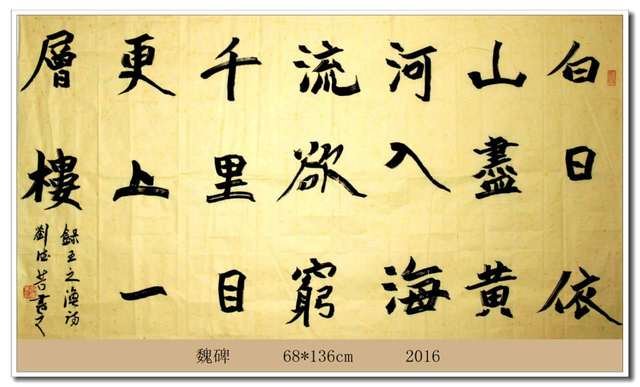 白日依
山盡黄
河入海
流欲窮
千里目
更上一
層樓
録王之渙詩
劉
書
魏碑 68*136cm 2016